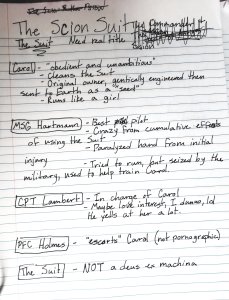 The Scion Suit
The Suit Need real title
Carol - "obedient and unambitious"
- Cleans the Suit
- Original owner, genetically engineered then
sent to Earth as a "seed"
- Runs like a girl
MSG Hartmann - Best pilot
- Crazy from cumulative effects
of using the Suit
- Paralyzed hand from initial
injury
- Tried to run, but seized by the
military, used to help train Carol
CPT Lambert - In charge of Carol
- Maybe love interest, I dunno, lol
He yells at her a lot.
PFC Holmes - "escorts" Carol (not pornographic)
The Suit - NOT a deus ex machina